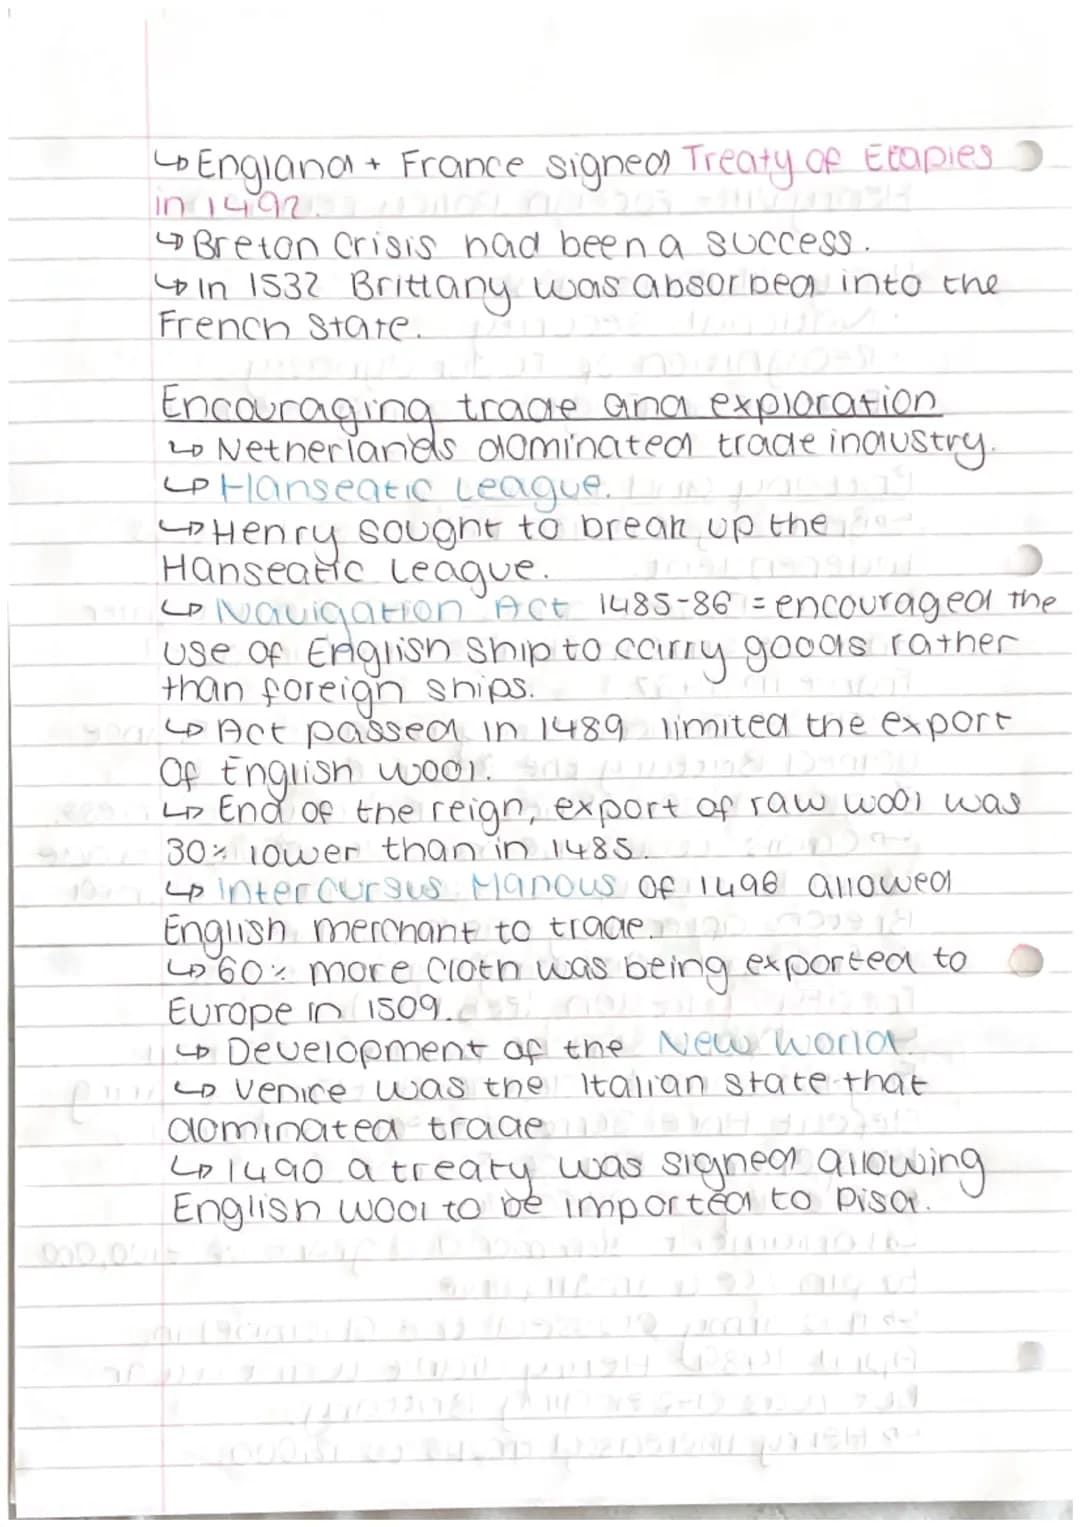 ↳ England + France signed Treaty of Etaples
in 1492.
↳ Breton Crisis had been a success.
↳ In 1532 Brittany was absorbed into the
French state.
Encouraging trade and exploration
↳ Netherlands dominated trade industry.
↳ Hanseatic League.
↳ Henry sought to break up the
Hanseatic League.
↳ Navigation Act 1485-86 = encouraged the
use of English ship to carry goods rather
than foreign ships.
↳ Act passed in 1489 limited the export
Of English wool.
↳ End of the reign, export of raw wool was
30% lower than in 1485.
↳ Intercursus Manous of 1496 allowed
English merchant to trade.
↳ 60% more cloth was being exported to
Europe in 1509.
↳ Development of the New World.
↳ Venice was the Italian state that
dominated trade
↳ 1490 a treaty was signed allowing
English wool to be imported to Pisa.